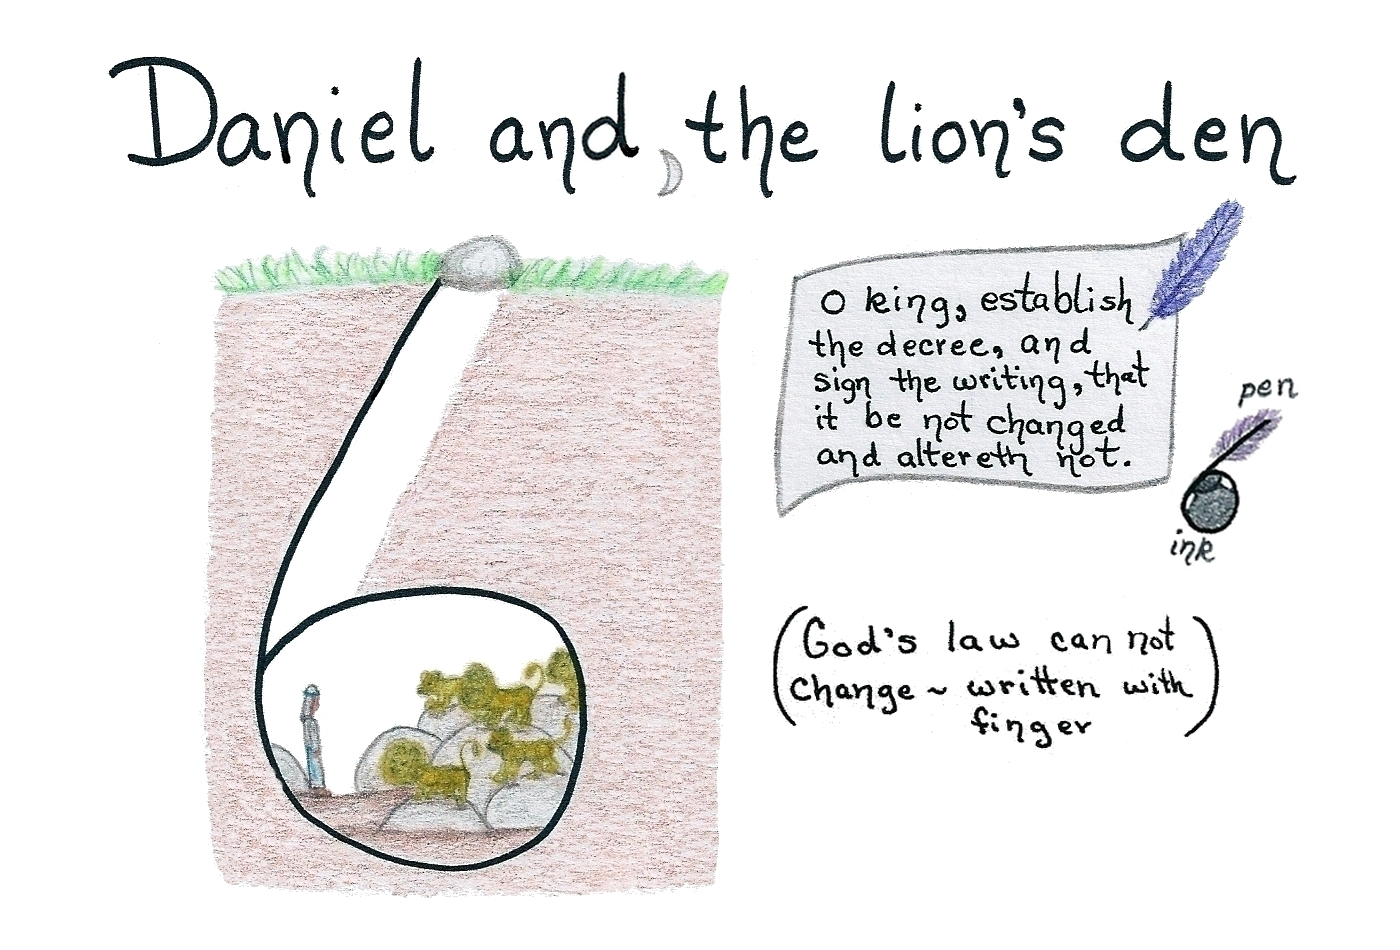 Daniel and the lion's den
O king, establish
the decree, and
sign the writing, that
it be not changed
and altereth not.
pen
ink
(God's law can not
change ~ written with
finger)
6